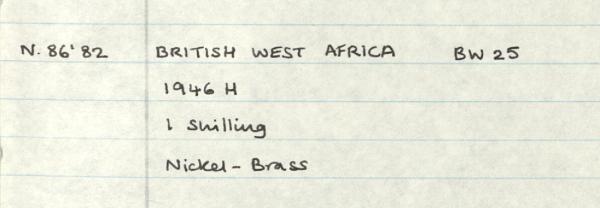 N. 86'82 BRITISH WEST AFRICA BW 25
1946 H
1 shilling
Nickel-Brass